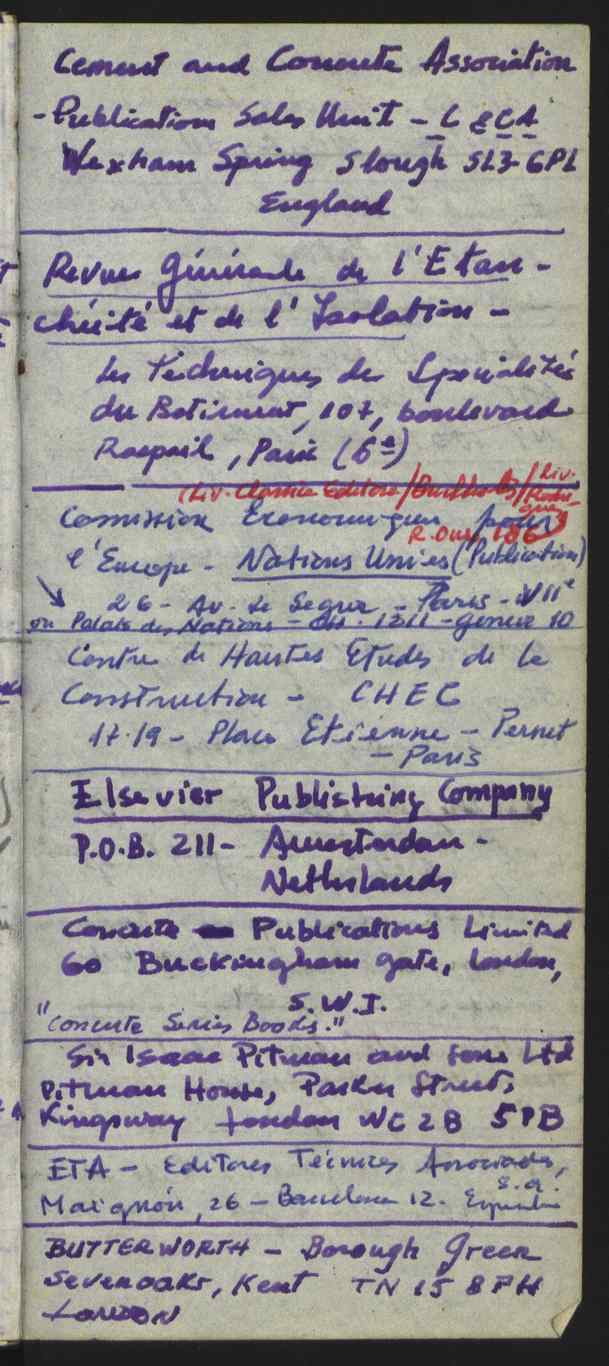 Cement and Concrete Association
- Publications Sales Unit - C & CA
Wexham Spring Slough SL3 6PL
England
Revue Générale de l'Etan-
chéité et de l'Isolation -
Les Téchniques des Spécialités
du Batiment, 107, boulevard
Raspail, Paris (6e)
(Liv. Classica Editora/Buchholz/Liv.
R. Ouro, 186)
Comission Economique pour
l'Europe - Nations Unies (Publication)
26 - Av. de Segur - Paris - VIIe
ou Palais des Nations - CH. 1211 - Genève 10
Centre de Hautes Etudes de la
Construction - CHEC
17.19 - Place Etienne - Pernet
- Paris
Elsevier Publishing Company
P.O.B. 211 - Amsterdam -
Netherlands
Concrete Publications Limited
60 Buckingham gate, London,
S.W.I.
"Concrete Series Books."
Sir Isaac Pitman and sons Ltd
Pitman House, Parker Street,
Kingsway London WC2B 5PB
ETA - Editores Técnicos Asociados,
S.a.
Maignón, 26 - Barcelona 12. España
BUTTERWORTH - Borough Green
Sevenoaks, Kent TN 15 8PH
LONDON